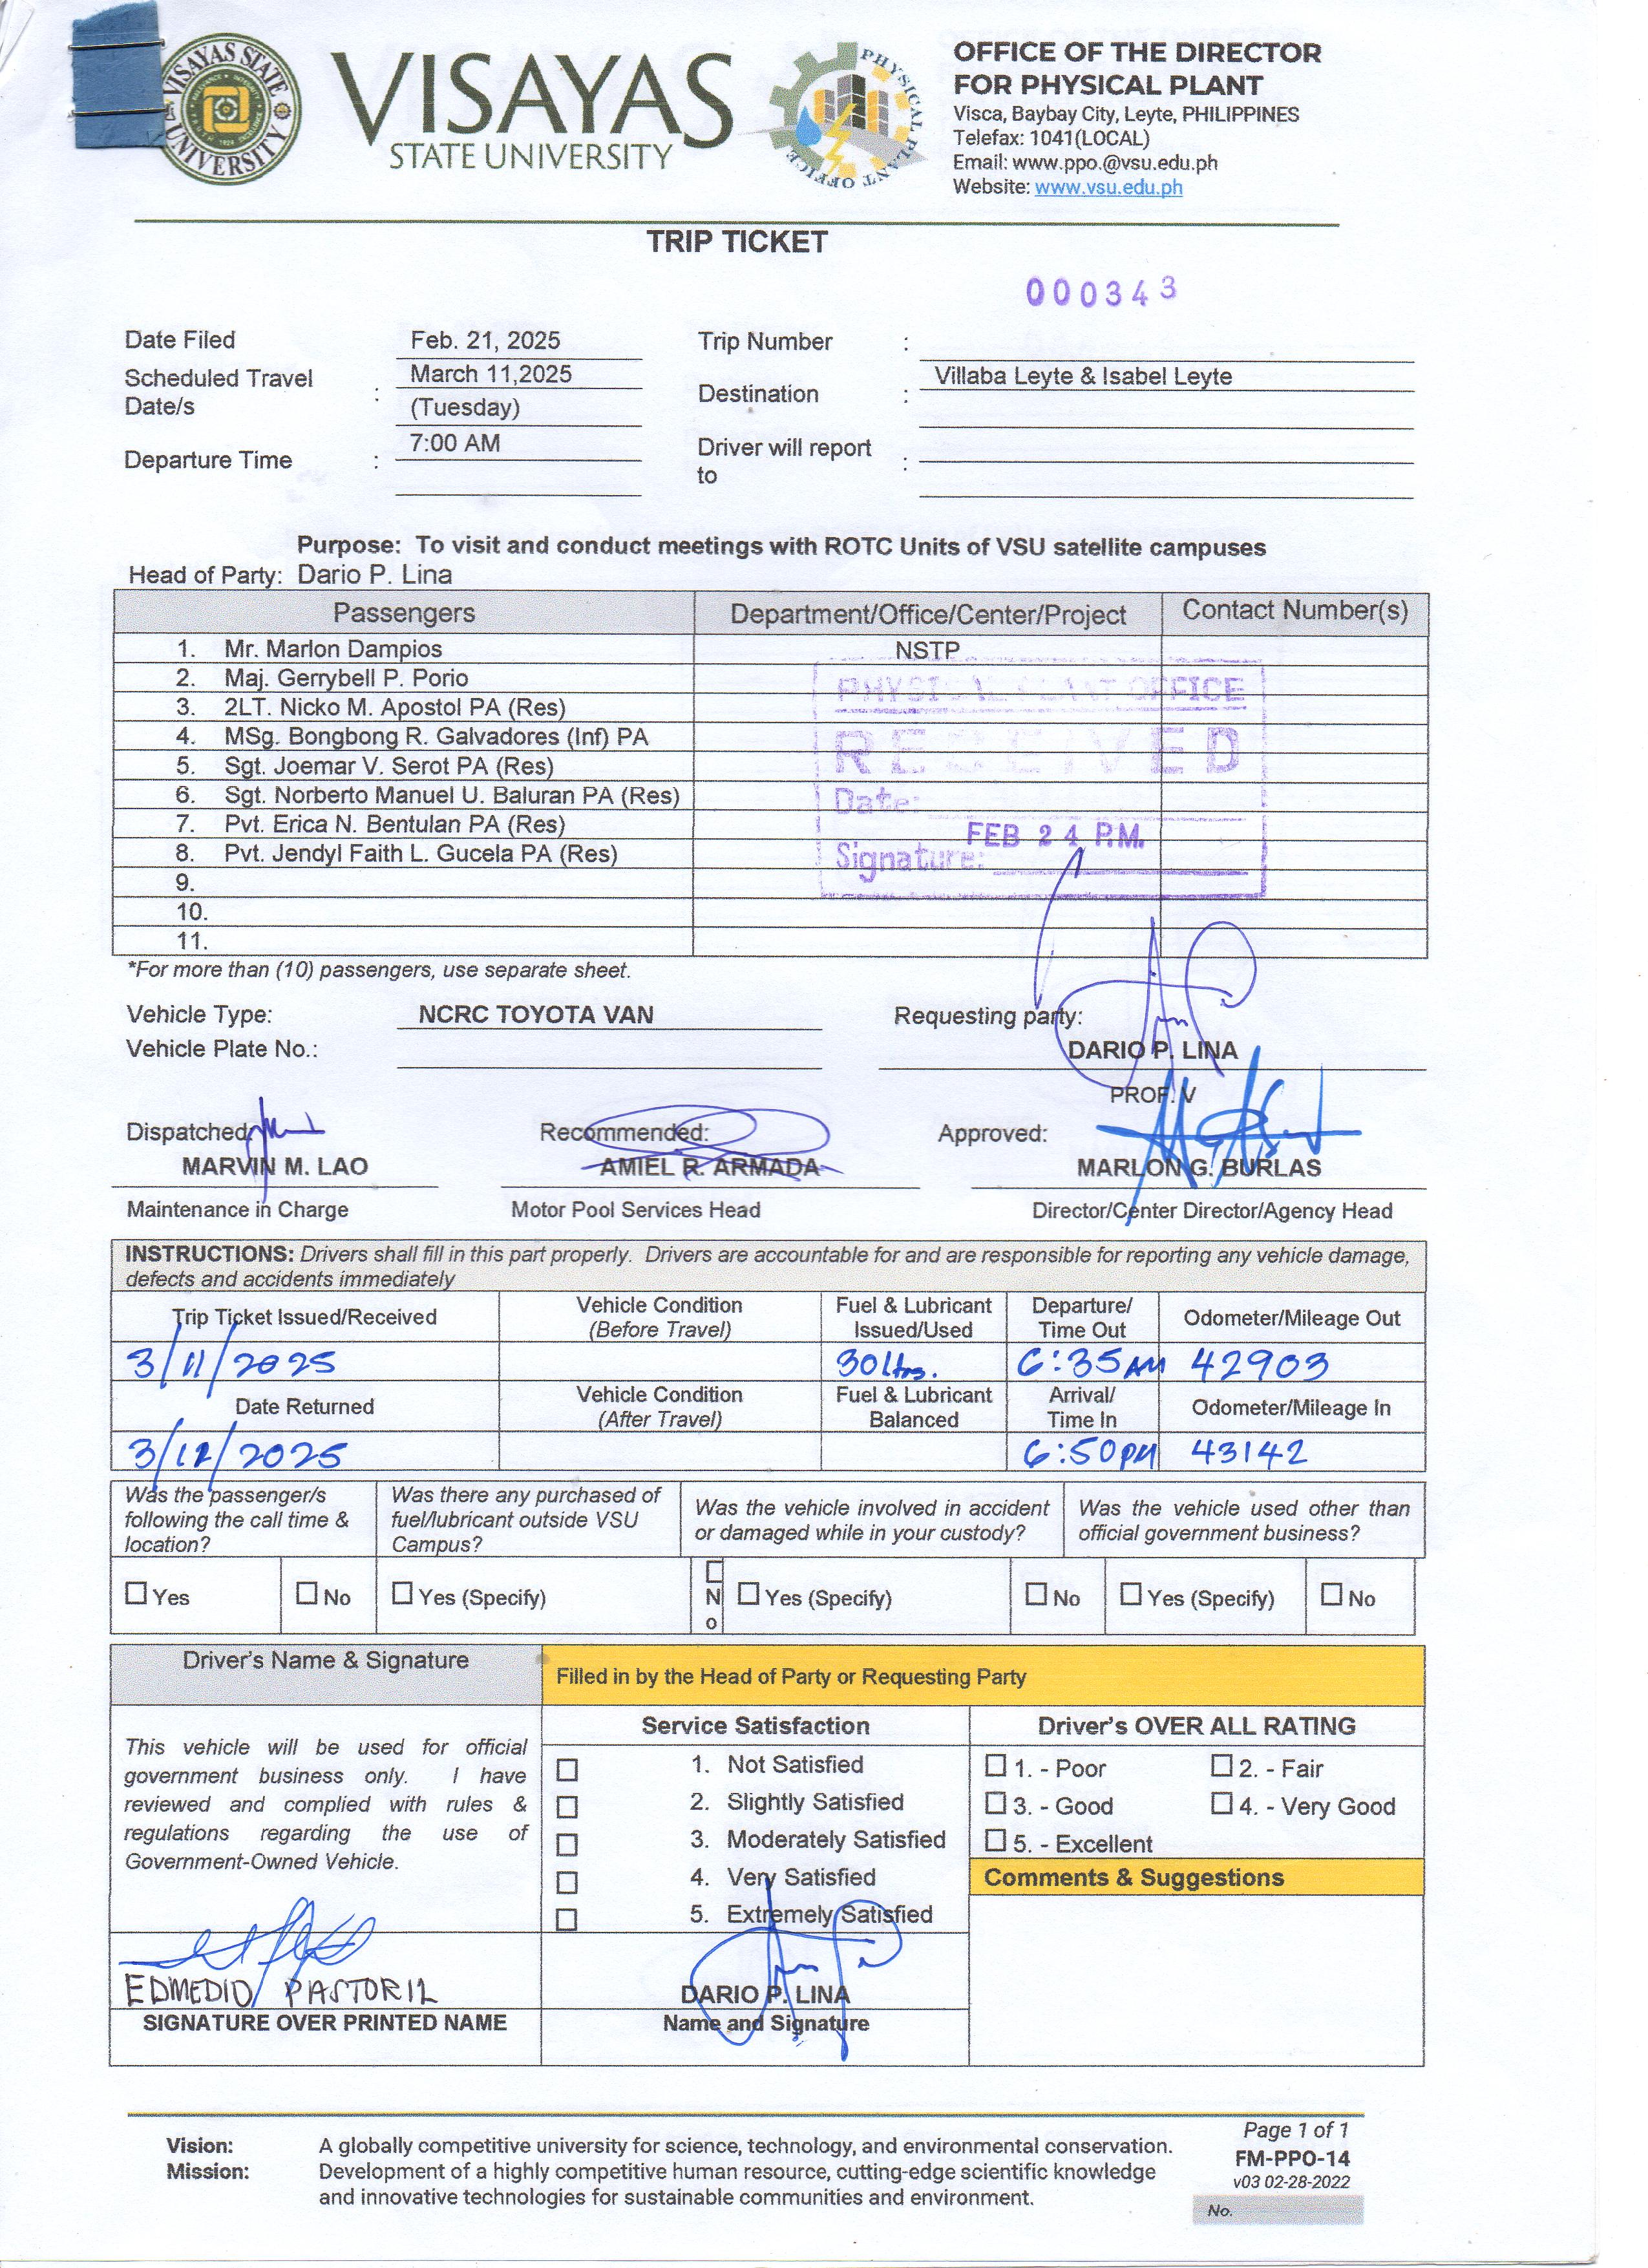 VISAYAS STATE UNIVERSITY
VISAYAS
STATE UNIVERSITY
PHYSICAL PLANT OFFICE
OFFICE OF THE DIRECTOR
FOR PHYSICAL PLANT
Visca, Baybay City, Leyte, PHILIPPINES
Telefax: 1041(LOCAL)
Email: www.ppo.@vsu.edu.ph
Website: www.vsu.edu.ph
TRIP TICKET
000343
Date Filed Feb. 21, 2025 Trip Number :
Scheduled Travel Date/s : March 11,2025 (Tuesday) Destination : Villaba Leyte & Isabel Leyte
Departure Time : 7:00 AM Driver will report to :
Purpose: To visit and conduct meetings with ROTC Units of VSU satellite campuses
Head of Party: Dario P. Lina
Passengers Department/Office/Center/Project Contact Number(s)
1. Mr. Marlon Dampios NSTP
2. Maj. Gerrybell P. Porio
3. 2LT. Nicko M. Apostol PA (Res)
4. MSg. Bongbong R. Galvadores (Inf) PA
5. Sgt. Joemar V. Serot PA (Res)
6. Sgt. Norberto Manuel U. Baluran PA (Res)
7. Pvt. Erica N. Bentulan PA (Res)
8. Pvt. Jendyl Faith L. Gucela PA (Res)
9.
10.
11.
PHYSICAL PLANT OFFICE
RECEIVED
Date:
FEB 24 P.M.
Signature:
*For more than (10) passengers, use separate sheet.
Vehicle Type: NCRC TOYOTA VAN Requesting party:
Vehicle Plate No.: DARIO P. LINA
PROF. V
Dispatched: Recommended: Approved:
MARVIN M. LAO AMIEL R. ARMADA MARLON G. BURLAS
Maintenance in Charge Motor Pool Services Head Director/Center Director/Agency Head
INSTRUCTIONS: Drivers shall fill in this part properly. Drivers are accountable for and are responsible for reporting any vehicle damage,
defects and accidents immediately
Trip Ticket Issued/Received Vehicle Condition (Before Travel) Fuel & Lubricant Issued/Used Departure/ Time Out Odometer/Mileage Out
3/11/2025 30 ltrs. 6:35 AM 42903
Date Returned Vehicle Condition (After Travel) Fuel & Lubricant Balanced Arrival/ Time In Odometer/Mileage In
3/12/2025 6:50 PM 43142
Was the passenger/s following the call time & location? Was there any purchased of fuel/lubricant outside VSU Campus? Was the vehicle involved in accident or damaged while in your custody? Was the vehicle used other than official government business?
☐ Yes ☐ No ☐ Yes (Specify) ☐ No ☐ Yes (Specify) ☐ No ☐ Yes (Specify) ☐ No
Driver's Name & Signature Filled in by the Head of Party or Requesting Party
This vehicle will be used for official
government business only. I have
reviewed and complied with rules &
regulations regarding the use of
Government-Owned Vehicle.
EDMEDIO PASTORIL
SIGNATURE OVER PRINTED NAME
Service Satisfaction
☐ 1. Not Satisfied
☐ 2. Slightly Satisfied
☐ 3. Moderately Satisfied
☐ 4. Very Satisfied
☐ 5. Extremely Satisfied
DARIO P. LINA
Name and Signature
Driver's OVER ALL RATING
☐ 1. - Poor ☐ 2. - Fair
☐ 3. - Good ☐ 4. - Very Good
☐ 5. - Excellent
Comments & Suggestions
Vision: A globally competitive university for science, technology, and environmental conservation.
Mission: Development of a highly competitive human resource, cutting-edge scientific knowledge
and innovative technologies for sustainable communities and environment.
Page 1 of 1
FM-PPO-14
v03 02-28-2022
No.